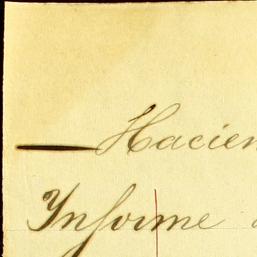 — Hacien
Informe